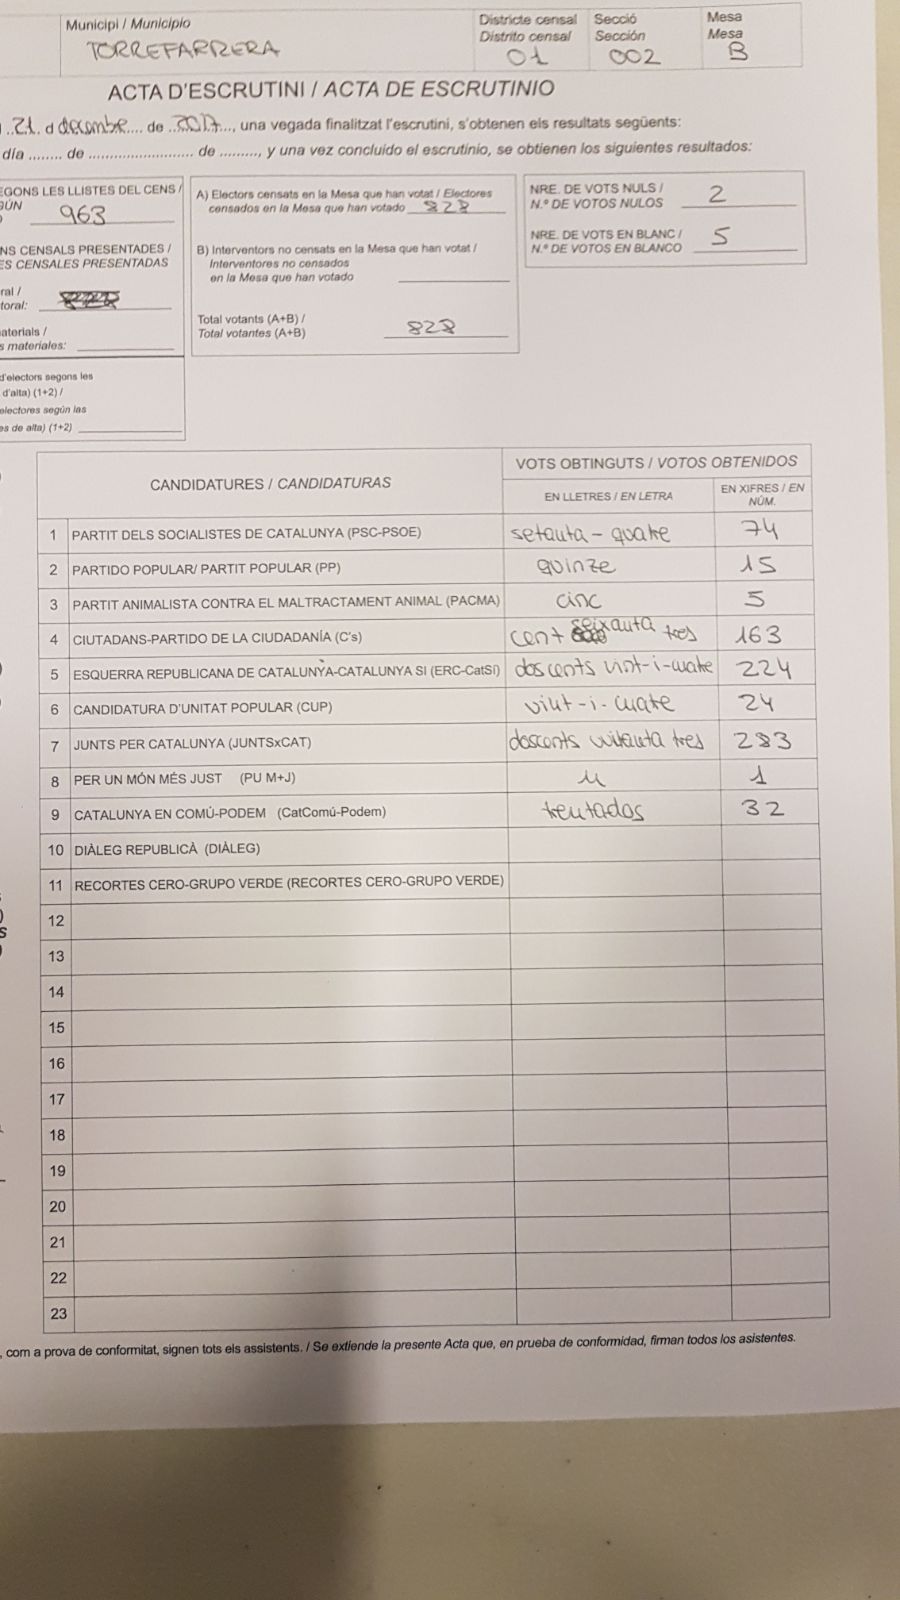 Municipi / Municipio
TORREFARRERA
Districte censal
Distrito censal
01
Secció
Sección
002
Mesa
Mesa
B
ACTA D'ESCRUTINI / ACTA DE ESCRUTINIO
..21.. d decembre.... de ..2017..., una vegada finalitzat l'escrutini, s'obtenen els resultats següents:
día ........ de .......................... de ........., y una vez concluido el escrutinio, se obtienen los siguientes resultados:
EGONS LES LLISTES DEL CENS /
963
NS CENSALS PRESENTADES /
ES CENSALES PRESENTADAS
ral /
toral:
aterials /
s materiales:
d'electors segons les
d'alta) (1+2) /
electores según las
es de alta) (1+2)
A) Electors censats en la Mesa que han votat / Electores
censados en la Mesa que han votado 828
B) Interventors no censats en la Mesa que han votat /
Interventores no censados
en la Mesa que han votado
Total votants (A+B) /
Total votantes (A+B) 828
NRE. DE VOTS NULS /
N.º DE VOTOS NULOS 2
NRE. DE VOTS EN BLANC /
N.º DE VOTOS EN BLANCO 5
CANDIDATURES / CANDIDATURAS
VOTS OBTINGUTS / VOTOS OBTENIDOS
EN LLETRES / EN LETRA
EN XIFRES / EN
NÚM.
1 PARTIT DELS SOCIALISTES DE CATALUNYA (PSC-PSOE) setanta - quatre 74
2 PARTIDO POPULAR/ PARTIT POPULAR (PP) quinze 15
3 PARTIT ANIMALISTA CONTRA EL MALTRACTAMENT ANIMAL (PACMA) cinc 5
4 CIUTADANS-PARTIDO DE LA CIUDADANÍA (C's) cent seixanta tres 163
5 ESQUERRA REPUBLICANA DE CATALUNYA-CATALUNYA SI (ERC-CatSí) doscents vint-i-cuatre 224
6 CANDIDATURA D'UNITAT POPULAR (CUP) vint-i-cuatre 24
7 JUNTS PER CATALUNYA (JUNTSxCAT) doscents vuitanta tres 283
8 PER UN MÓN MÉS JUST (PU M+J) u 1
9 CATALUNYA EN COMÚ-PODEM (CatComú-Podem) trentados 32
10 DIÀLEG REPUBLICÀ (DIÀLEG)
11 RECORTES CERO-GRUPO VERDE (RECORTES CERO-GRUPO VERDE)
12
13
14
15
16
17
18
19
20
21
22
23
, com a prova de conformitat, signen tots els assistents. / Se extiende la presente Acta que, en prueba de conformidad, firman todos los asistentes.